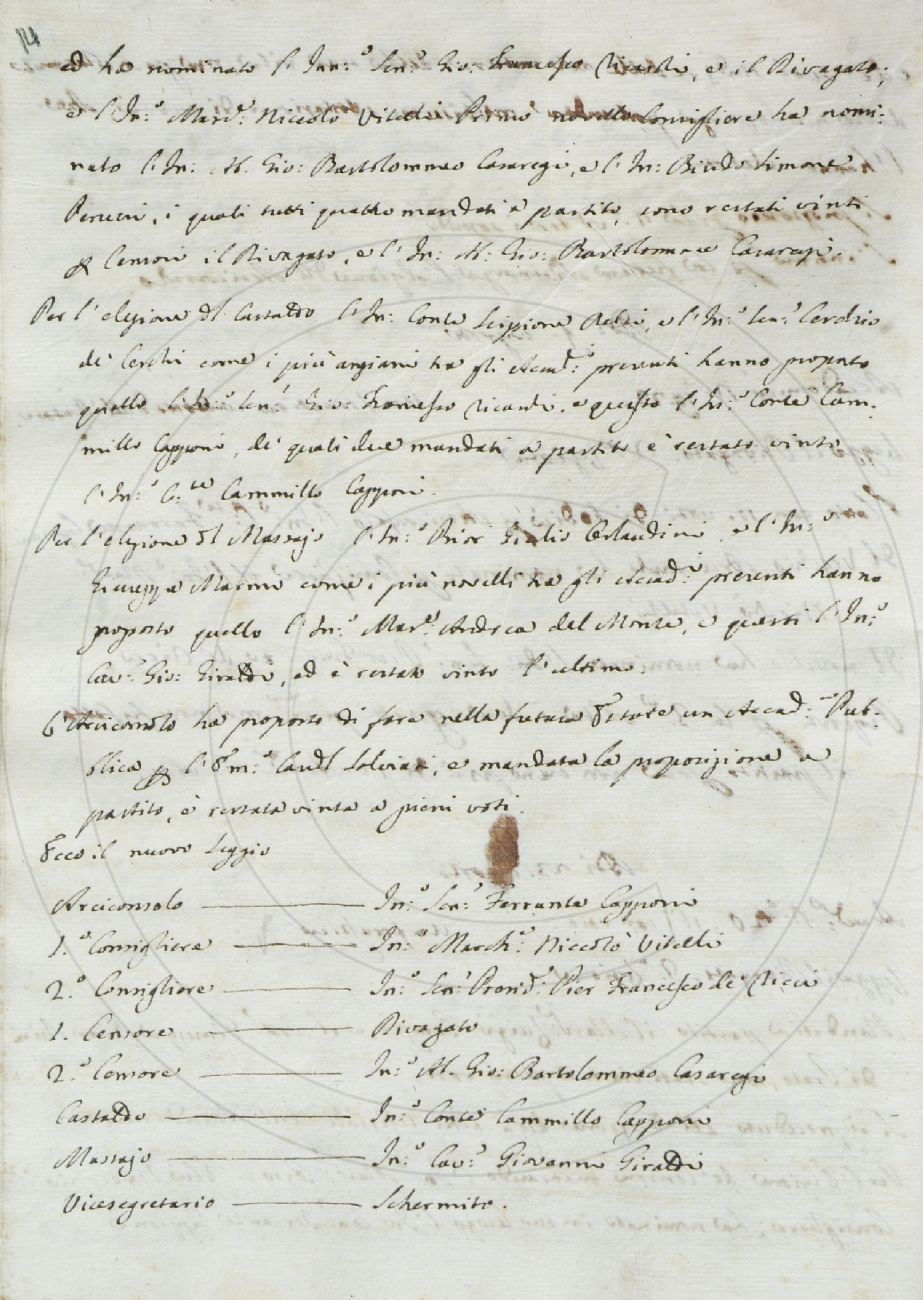 14
ed ha nominato l'Inn:º Sen:º Gio: Francesco Ricardi, e il Rivagato;
e l'In:º Marc:º Niccolò Vitelli Primo novello Consigliere ha nomi-
nato l'In: A. Gio: Bartolommeo Casaregi, e l'In: Bindo Simone
Peruzzi, i quali tutti quattro mandati a partito, sono restati vinti
p Censori il Rivagato, e l'In: A: Gio: Bartolommeo Casaregi.
Per l'elezione dl Castaldo l'In: Conte Scipione, e l'In:º Sen:º Cerchio
de' Cerchi come i più anziani tra gli Accad:i presenti hanno proposto
quello l'In:º Sen:º Gio: Francesco Ricardi, e questo l'In:º Conte Cam-
millo Capponi, de' quali due mandati a partito è restato vinto
l'In:º C:te Cammillo Capponi.
Per l'elezione dl Massajo l'In:º Prior Giulio Orlandini, e l'In:º
Giuseppe Marmi come i più novelli tra gli Accad:i presenti hanno
proposto quello l'In:º Mar:e Andrea del Monte, e questi l'In:º
Cav:º Gio: Giraldi, ed è restato vinto l'ultimo.
L'Arciconsolo ha proposto di fare nella futura Estate un Accad:a Pub-
blica p l'Em:º Cardl Salviati, e mandata la proposizione a
partito, è restata vinta a pieni voti.
Ecco il nuovo Seggio
Arciconsolo In:º Sen:º Ferrante Capponi
1.º Consigliere In:º March:º Niccolò Vitelli
2.º Consigliere In:º Sen:º Presid:e Pier Francesco de' Ricci
1. Censore Rivagato
2.º Censore In:º A. Gio: Bartolommeo Casaregi
Castaldo In:º Conte Cammillo Capponi
Massajo In:º Cav:º Giovanni Giraldi
Vicesegretario Schermito.